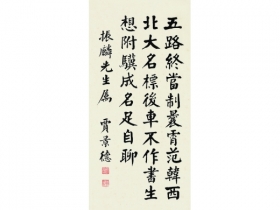 五路終當制曩霄范韓西
北大名標後車不作書生
想附驥成名足自聊
振麟先生屬 賈景德